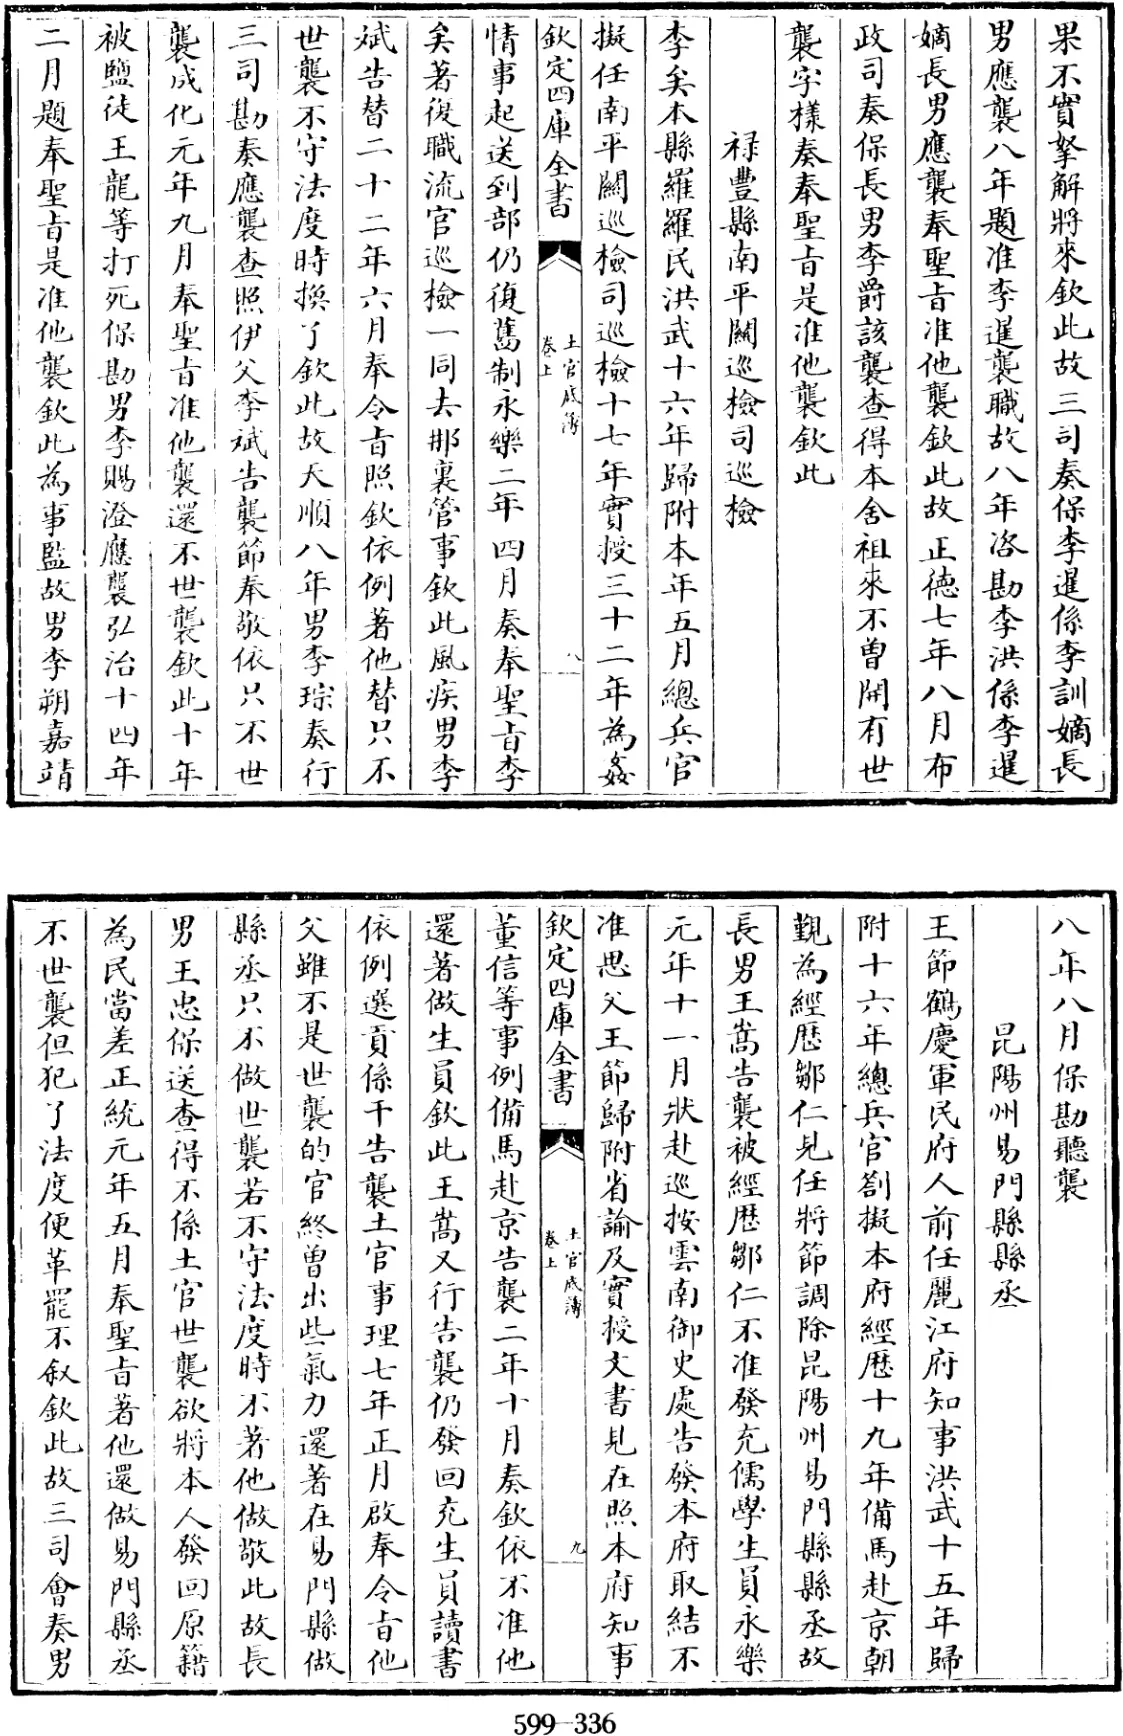 果不實拏解將來欽此故三司奏保李暹係李訓嫡長
男應襲八年題准李暹襲職故八年咨勘李洪係李暹
嫡長男應襲奉聖旨准他襲欽此故正德七年八月布
政司奏保長男李爵該襲查得本舍祖來不曽開有世
襲字樣奏奉聖旨是准他襲欽此
禄豐縣南平關巡檢司巡檢
李矣本縣羅羅民洪武十六年歸附本年五月總兵官
擬任南平關巡檢司巡檢十七年實授三十二年為姦
欽定四庫全書
土官底簿
卷上
八
情事起送到部仍復舊制永樂二年四月奏奉聖旨李
矣著復職流官巡檢一同去那裏管事欽此風疾男李
斌告替二十二年六月奉令旨照欽依例著他替只不
世襲不守法度時換了欽此故天順八年男李琮奏行
三司勘奏應襲查照伊父李斌告襲節奉敬依只不世
襲成化元年九月奉聖旨准他襲還不世襲欽此十年
被鹽徒王龍等打死保勘男李賜澄應襲弘治十四年
二月題奉聖旨是准他襲欽此為事監故男李朔嘉靖
八年八月保勘聽襲
昆陽州易門縣縣丞
王節鶴慶軍民府人前任麗江府知事洪武十五年歸
附十六年總兵官劄擬本府經歷十九年備馬赴京朝
覲為經歷鄒仁見任將節調除昆陽州易門縣縣丞故
長男王嵩告襲被經歷鄒仁不准發充儒學生員永樂
元年十一月狀赴巡按雲南御史處告發本府取結不
准思父王節歸附省諭及實授文書見在照本府知事
欽定四庫全書
土官底簿
卷上
九
董信等事例備馬赴京告襲二年十月奏欽依不准他
還著做生員欽此王嵩又行告襲仍發回充生員讀書
依例選貢係干告襲土官事理七年正月啟奉令旨他
父雖不是世襲的官終曽出些氣力還著在易門縣做
縣丞只不做世襲若不守法度時不著他做敬此故長
男王忠保送查得不係土官世襲欲將本人發回原籍
為民當差正統元年五月奉聖旨著他還做易門縣丞
不世襲但犯了法度便革罷不叙欽此故三司會奏男
599-336